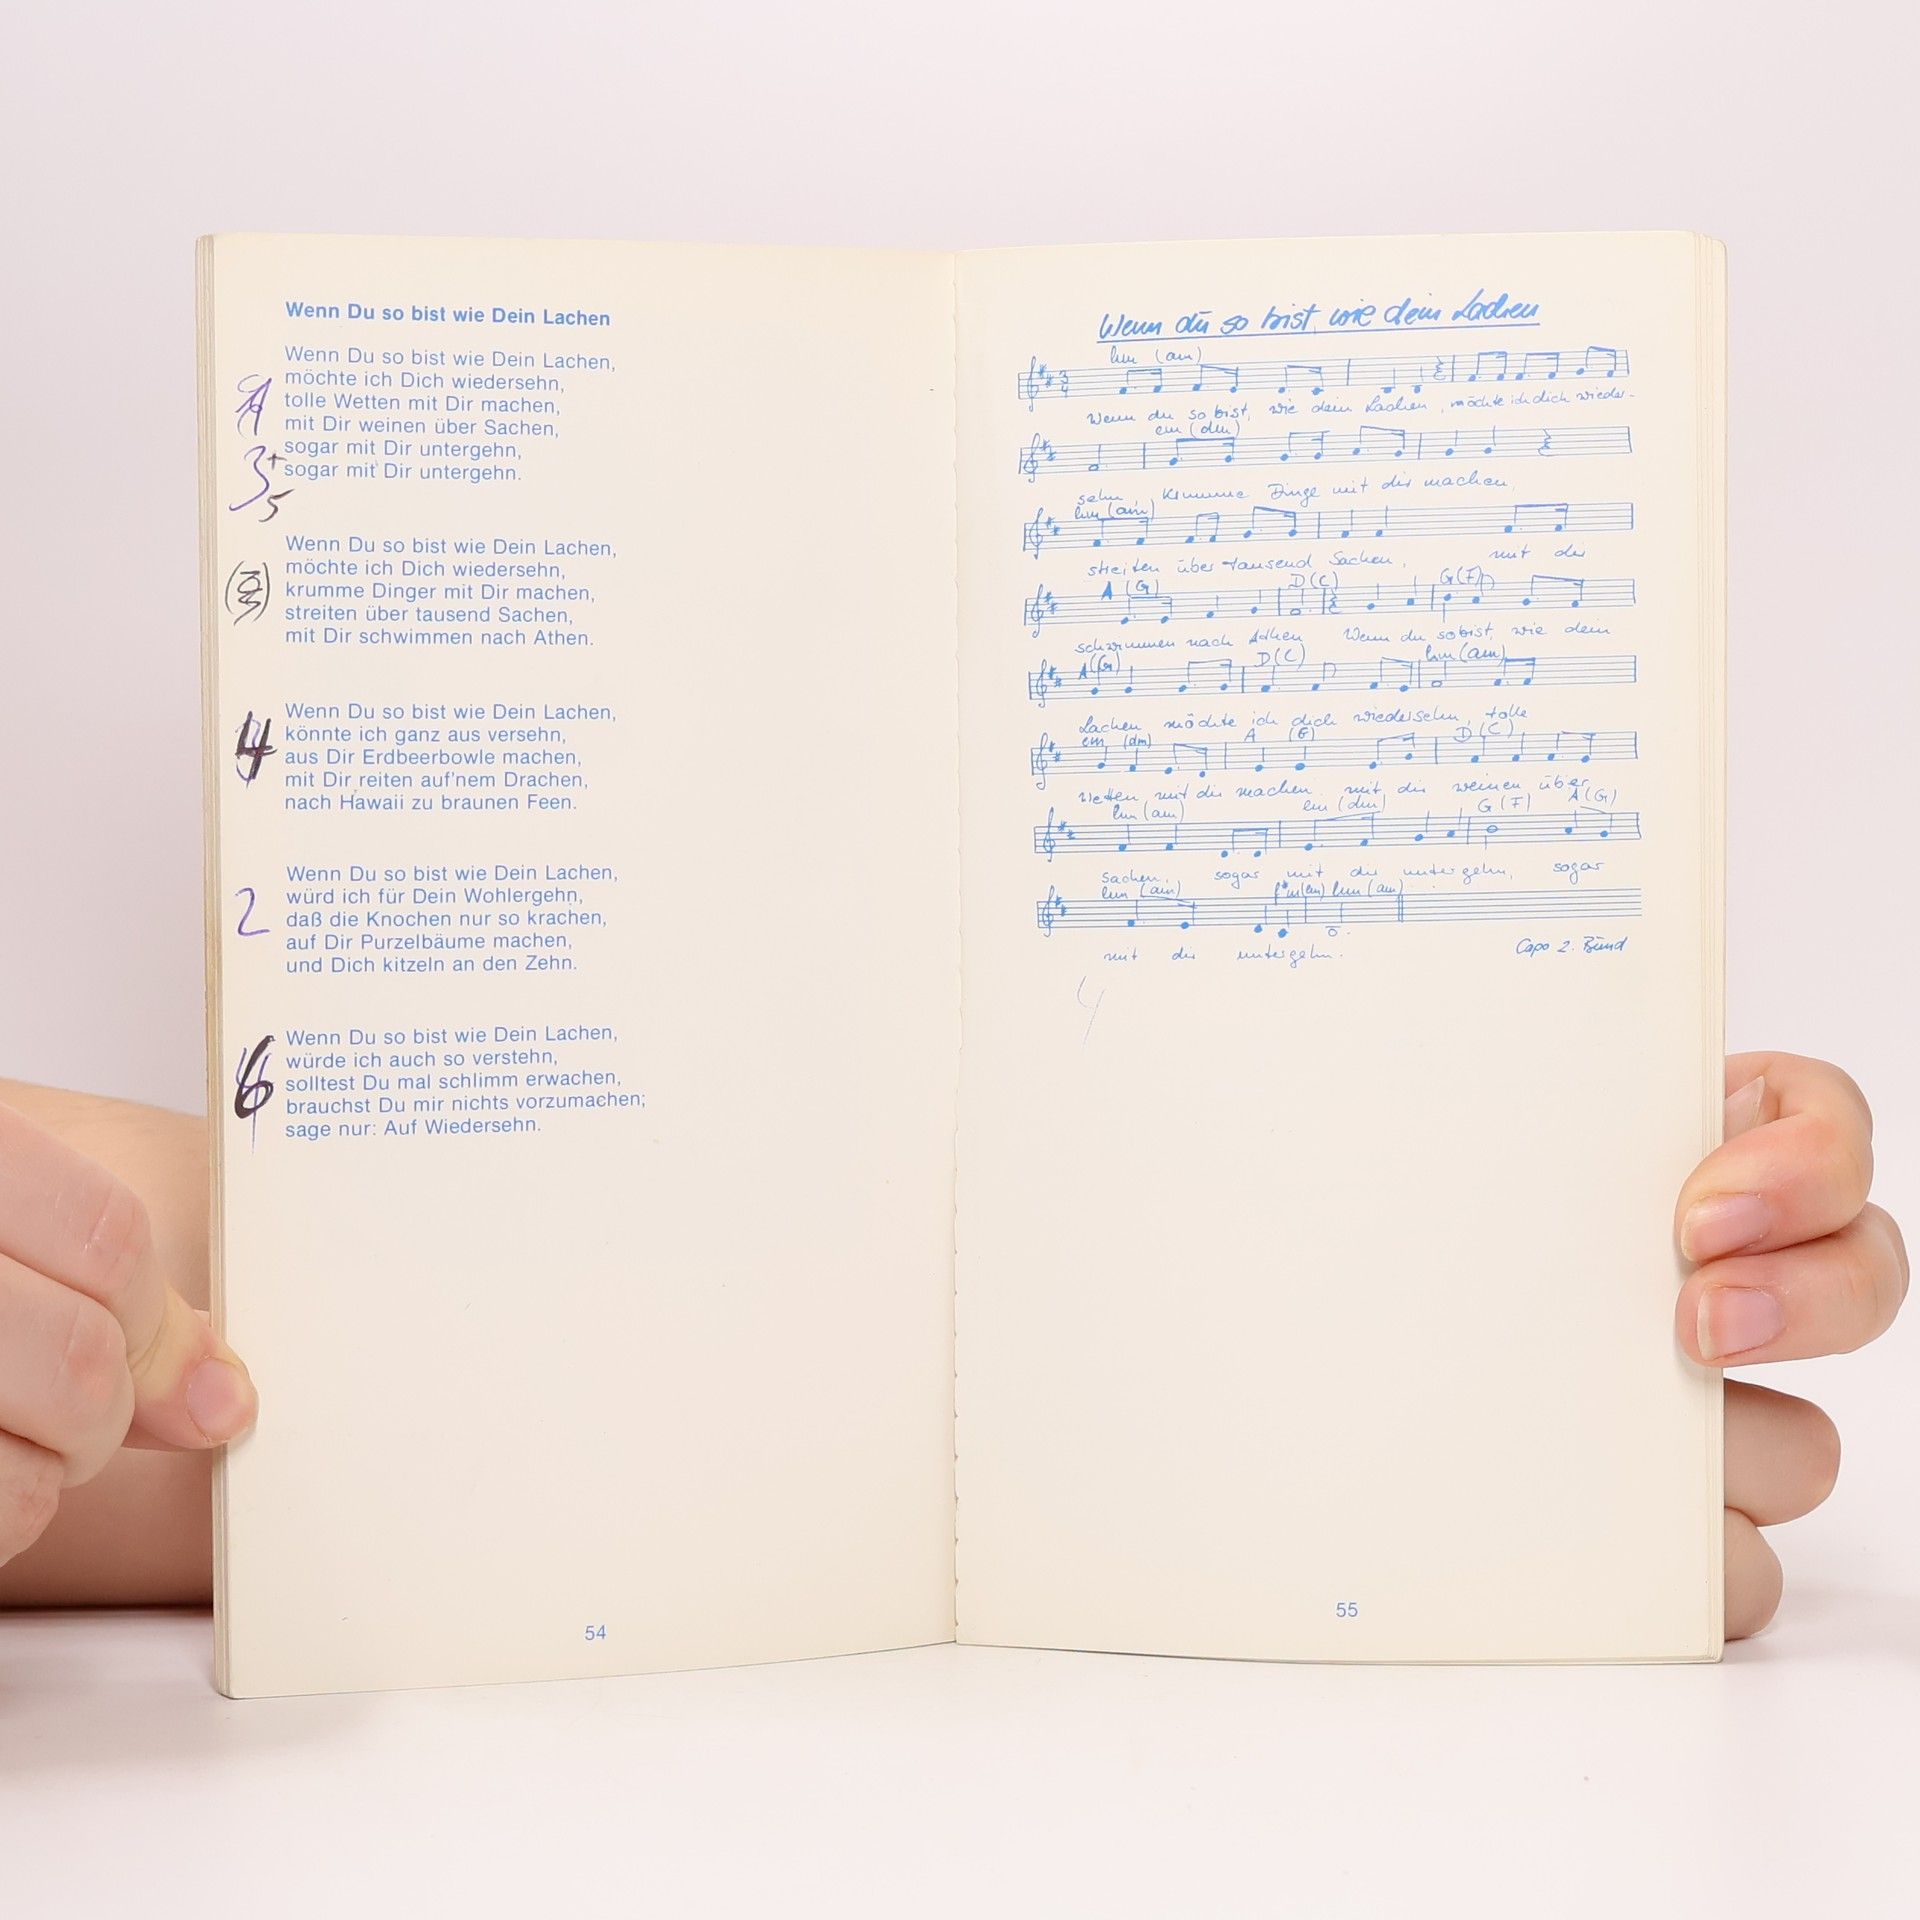 Wenn Du so bist wie Dein Lachen
Wenn Du so bist wie Dein Lachen,
möchte ich Dich wiedersehn,
tolle Wetten mit Dir machen,
mit Dir weinen über Sachen,
sogar mit Dir untergehn,
sogar mit Dir untergehn.
3+
5
Wenn Du so bist wie Dein Lachen,
möchte ich Dich wiedersehn,
krumme Dinger mit Dir machen,
streiten über tausend Sachen,
mit Dir schwimmen nach Athen.
4
Wenn Du so bist wie Dein Lachen,
könnte ich ganz aus versehn,
aus Dir Erdbeerbowle machen,
mit Dir reiten auf'nem Drachen,
nach Hawaii zu braunen Feen.
2
Wenn Du so bist wie Dein Lachen,
würd ich für Dein Wohlergehn,
daß die Knochen nur so krachen,
auf Dir Purzelbäume machen,
und Dich kitzeln an den Zehn.
6
Wenn Du so bist wie Dein Lachen,
würde ich auch so verstehn,
solltest Du mal schlimm erwachen,
brauchst Du mir nichts vorzumachen;
sage nur: Auf Wiedersehn.
54
Wenn du so bist, wie dein Lachen
hm (am)
3/4
Wenn du so bist, wie dein Lachen, möchte ich dich wieder-
em (dm)
sehn, krumme Dinge mit dir machen,
hm (am)
streiten über tausend Sachen, mit dir
A (G) D (C) G (F)
schwimmen nach Athen Wenn du so bist, wie dein
A (G) D (C) hm (am)
Lachen möchte ich dich wiedersehn, tolle
em (dm) A (G) D (C)
Wetten mit dir machen mit dir weinen über
hm (am) em (dm) G (F) A (G)
Sachen, sogar mit dir untergehn, sogar
hm (am) f#m (em) hm (am)
mit dir untergehn.
Capo 2. Bund
4
55